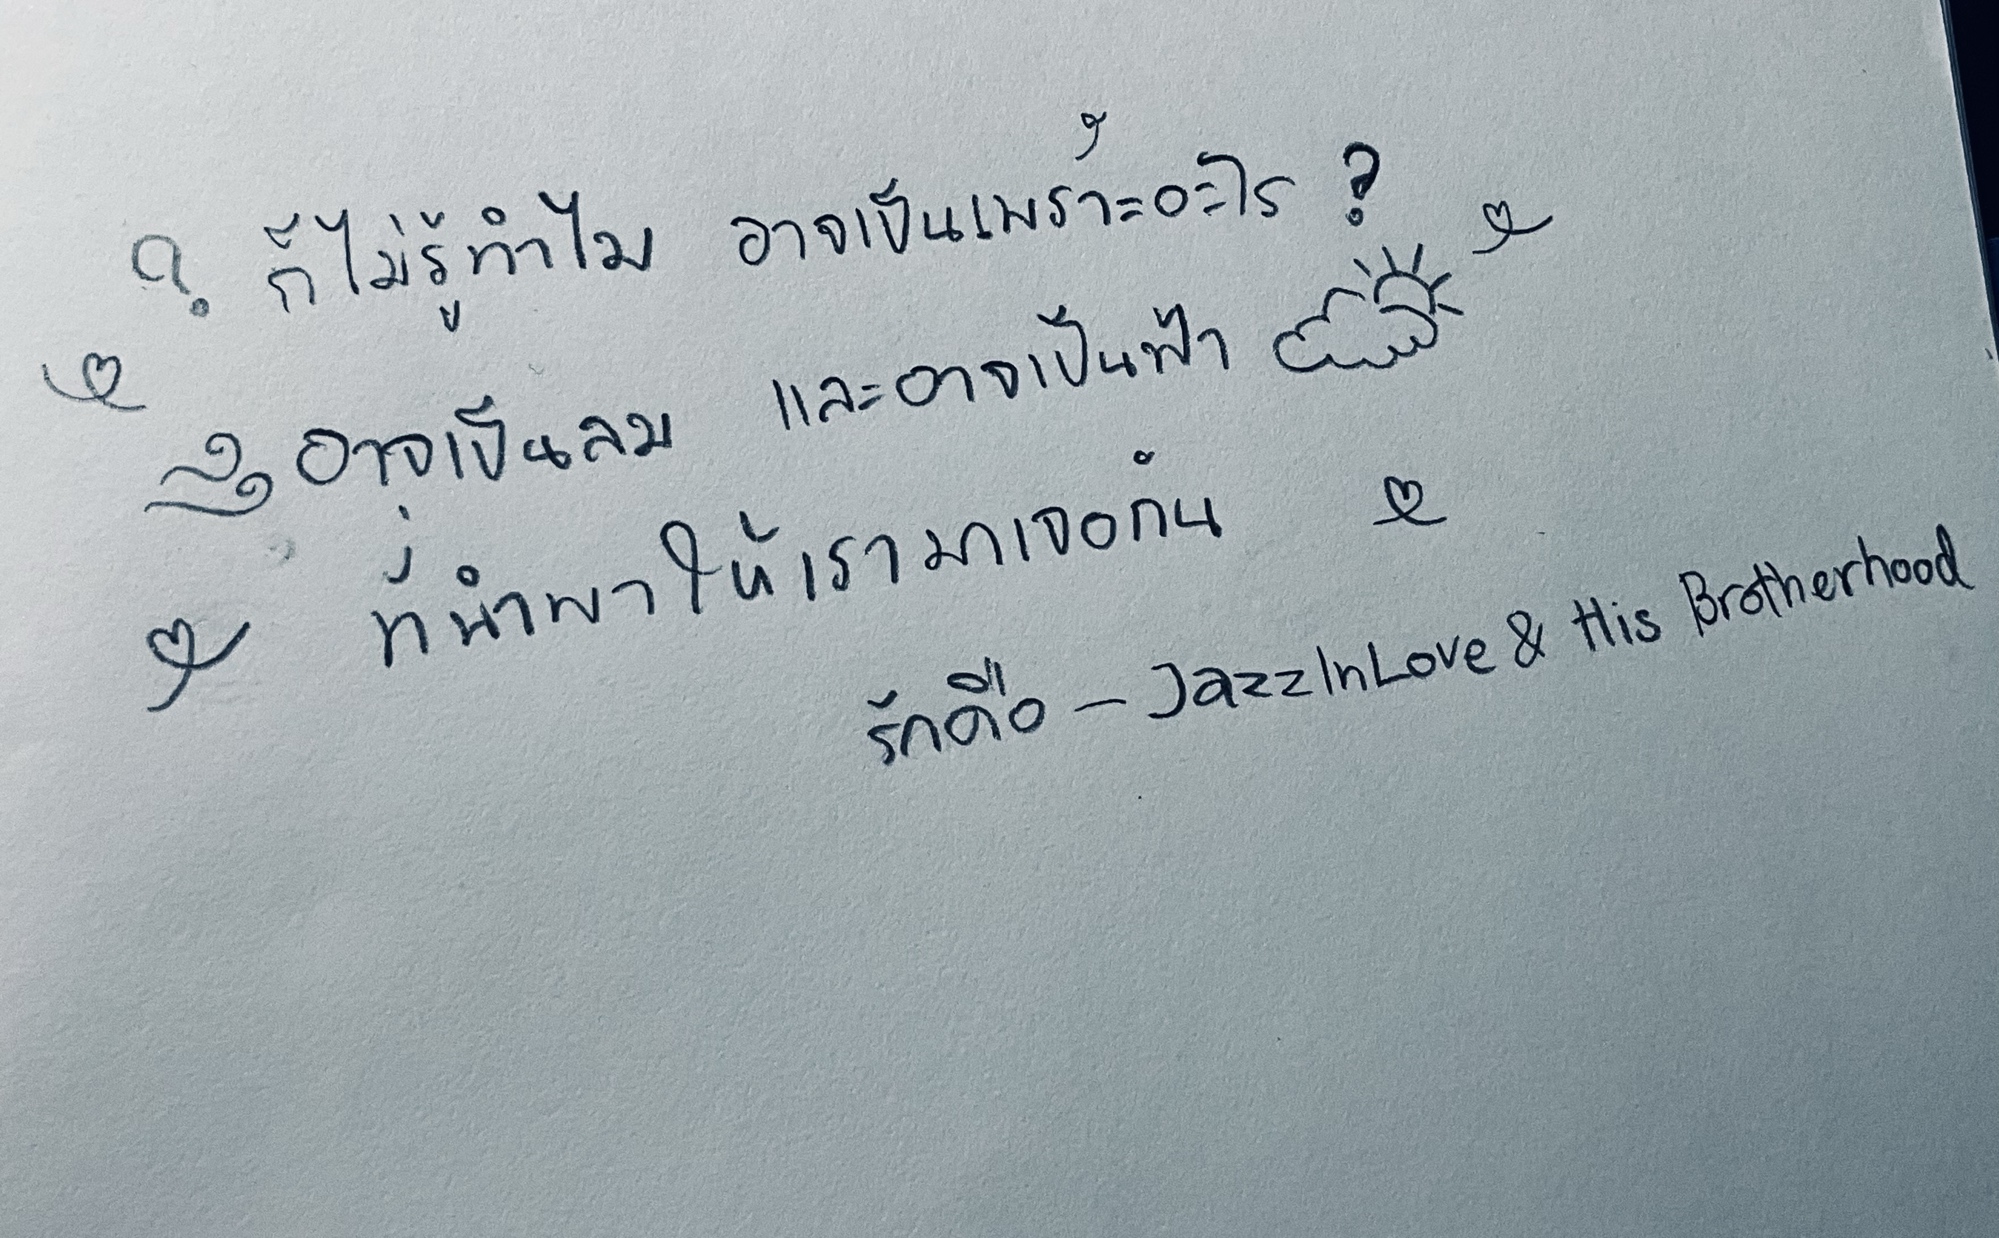 ? ก็ไม่รู้ทำไม อาจเป็นเพราะอะไร ?
อาจเป็นลม และอาจเป็นฟ้า
ที่นำพาให้เรามาเจอกัน
รักคือ - JazzInLove & His Brotherhood